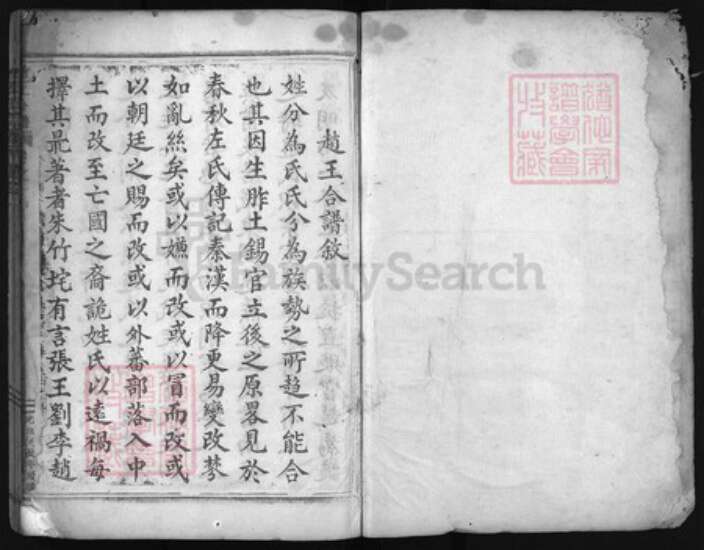 趙王合譜敘
姓分為氏氏分為族勢之所趨不能合
也其因生胙土錫官立後之原畧見於
春秋左氏傳記秦漢而降更易變改棼
如亂絲矣或以嫌而改或以冒而改或
以朝廷之賜而改或以外蕃部落入中
土而改至亡國之裔詭姓氏以遠禍每
擇其最著者朱竹垞有言張王劉李趙
譜學會
FamilySearch